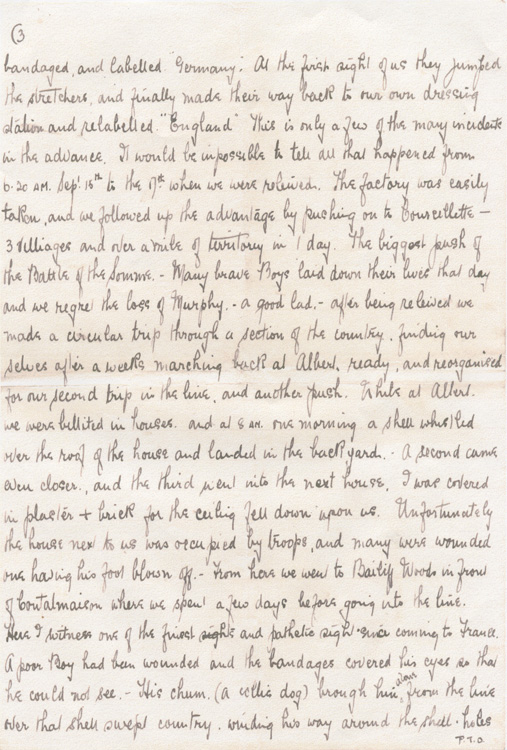 3
bandaged, and labelled "Germany". At the first sight of us they jumped
the stretchers, and finally made their way back to our own dressing
station and relabelled "England" This is only a few of the many incidents
in the advance. It would be impossible to tell all that happened from
6.20 AM. Sept 15th to the 17th when we were releived. The factory was easily
taken, and we followed up the advantage by pushing on to Courcellette —
3 villiages and over a mile of territory in 1 day. The biggest push of
the Battle of the Somme. - Many brave Boys laid down their lives that day
and we regret the loss of Murphy. - a good lad. - after being releived we
made a circular trip through a section of the country. finding our
selves after a weeks marching back at Albert, ready, and reorganised
for our second trip in the line, and another push. While at Albert.
we were billited in houses. and at 8 AM. one morning a shell whistled
over the roof of the house and landed in the back yard. - A second came
even closer., and the third went into the next house, I was covered
in plaster + brick for the ceiling fell down upon us. Unfortunately
the house next to us was occupied by troops, and many were wounded
one having his foot blown off. - From here we went to Bailiff Woods in front
of Contalmaison where we spent a few days before going into the line.
Here I witness one of the finest sights and pathetic sight since coming to France.
A poor Boy had been wounded and the bandages covered his eyes so that
he could not see. - His chum. (a collie dog) brough him down from the line
over that shell swept country. winding his way around the shell-holes
P.T.O.